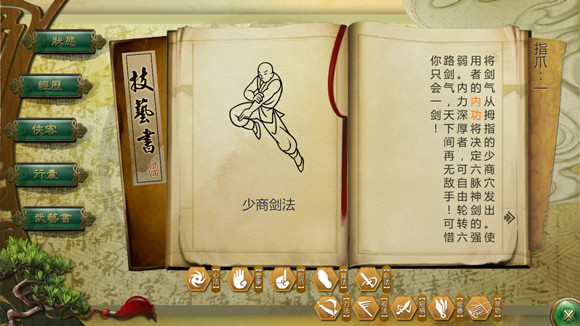 狀態
經歷
俠客
行囊
武藝書
技藝書
少商剑法
指爪：一
将剑气从拇指的少商穴发出。使
用者的内功将决定六脉神剑的强
弱。内力深厚者，可自由轮转六
路剑气，天下间再无敌手！可惜
你只会一剑！